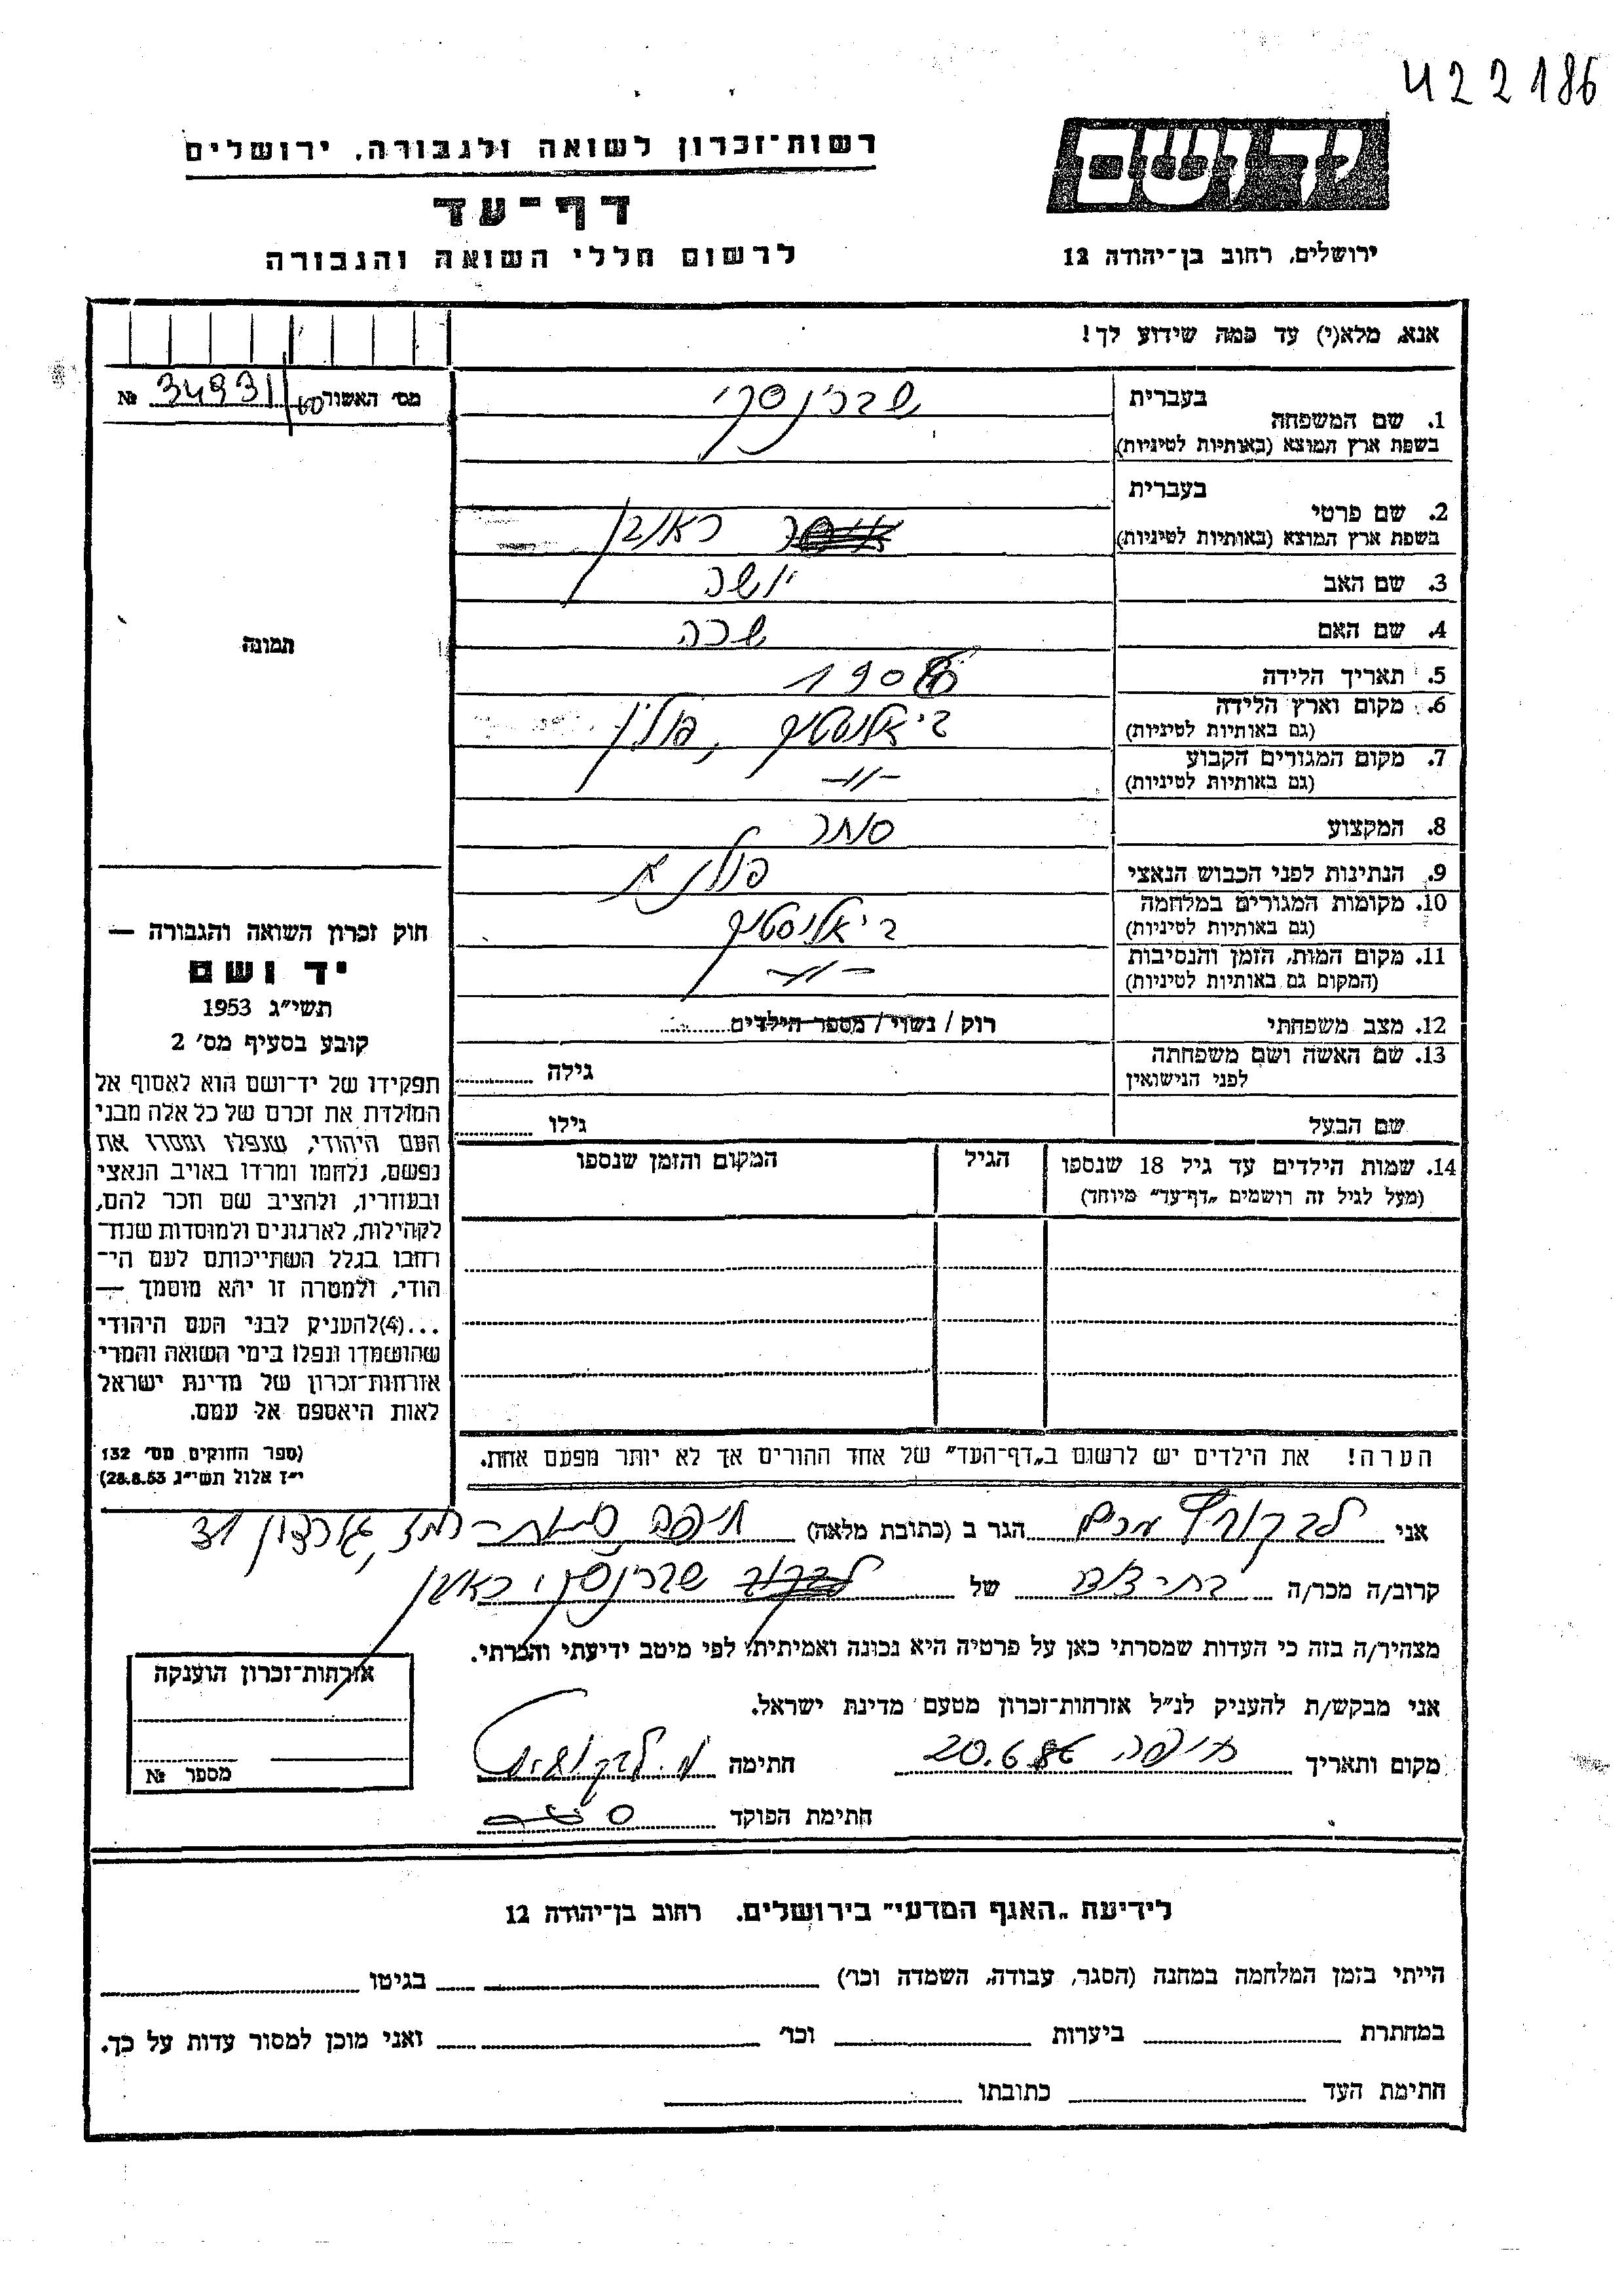 422186
רשות־זכרון לשואה ולגבורה, ירושלים
דף־עד
לרשום חללי השואה והגבורה
ידושם
ירושלים, רחוב בן־יהודה 12
אנא, מלא(י) עד כמה שידוע לך!
מס׳ האשור 34931/60 №
תמונה
1. שם המשפחה בעברית שברינסקי
בשפת ארץ המוצא (באותיות לטיניות)
2. שם פרטי בעברית
בשפת ארץ המוצא (באותיות לטיניות) ראובן
3. שם האב
4. שם האם שרה
5. תאריך הלידה 190
6. מקום וארץ הלידה ביאליסטוק, פולין
(גם באותיות לטיניות)
7. מקום המגורים הקבוע -"-
(גם באותיות לטיניות)
8. המקצוע סוחר
9. הנתינות לפני הכבוש הנאצי פולנית
10. מקומות המגורים במלחמה ביאליסטוק
(גם באותיות לטיניות)
11. מקום המות, הזמן והנסיבות -"-
(המקום גם באותיות לטיניות)
12. מצב משפחתי רוק / נשוי / מספר הילדים
13. שם האשה ושם משפחתה גילה
לפני הנישואין
שם הבעל גילו
14. שמות הילדים עד גיל 18 שנספו הגיל המקום והזמן שנספו
(מעל לגיל זה רושמים „דף־עד” מיוחד)
הערה! את הילדים יש לרשום ב„דף־העד” של אחד ההורים אך לא יותר מפעם אחת.
חוק זכרון השואה והגבורה —
יד ושם
תשי״ג 1953
קובע בסעיף מס׳ 2
תפקידו של יד־ושם הוא לאסוף אל
המולדת את זכרם של כל אלה מבני
העם היהודי, שנפלו ומסרו את
נפשם, נלחמו ומרדו באויב הנאצי
ובעוזריו, ולהציב שם וזכר להם,
לקהילות, לארגונים ולמוסדות שנח־
רבו בגלל השתייכותם לעם הי־
הודי, ולמטרה זו יהא מוסמך —
...(4) להעניק לבני העם היהודי
שהושמדו ונפלו בימי השואה והמרי
אזרחות־זכרון של מדינת ישראל
לאות היאספם אל עמם.
(ספר החוקים מס׳ 132
י״ז אלול תשי״ג 28.8.53)
אני מרים הגר ב (כתובת מלאה) חיפה
קרוב/ה מכר/ה של שברינסקי ראובן
מצהיר/ה בזה כי העדות שמסרתי כאן על פרטיה היא נכונה ואמיתית, לפי מיטב ידיעתי והכרתי.
אני מבקש/ת להעניק לנ״ל אזרחות־זכרון מטעם מדינת ישראל.
מקום ותאריך חיפה 20.6.86 חתימה
חתימת הפוקד
אזרחות־זכרון הוענקה
מספר №
לידיעת „האגף המדעי” בירושלים, רחוב בן־יהודה 12
הייתי בזמן המלחמה במחנה (הסגר, עבודה, השמדה וכו׳) בגיטו
במחתרת ביערות וכו׳ ואני מוכן למסור עדות על כך.
חתימת העד כתובתו